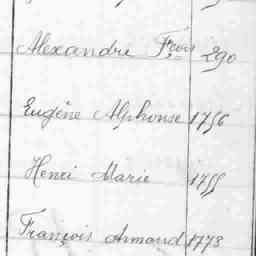 Alexandre Frçois 290
Eugène Alphonse 1756
Henri Marie 1755
François Armand 1778